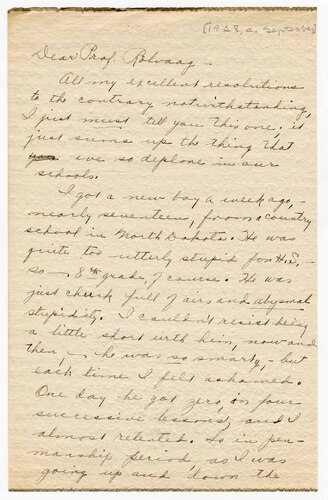 [1923, c. September]
Dear Prof. Rolvaag -
All my excellent resolutions
to the contrary notwithstanding,
I just must tell you this one, it
just sums up the thing that
we so deplore in our
schools.
I got a new boy a week ago, -
nearly seventeen, from a country
school in North Dakota. He was
quite too utterly stupid for H.S. -
so - 8th grade, of course. He was
just chuck full of airs and abysmal
stupidity. I couldn't resist being
a little short with him, now and
then, - he was so smarty, - but
each time I felt ashamed.
One day he got zero, on four
successive lessons, and I
almost relented. So in pen-
manship period as I was
going up and down the